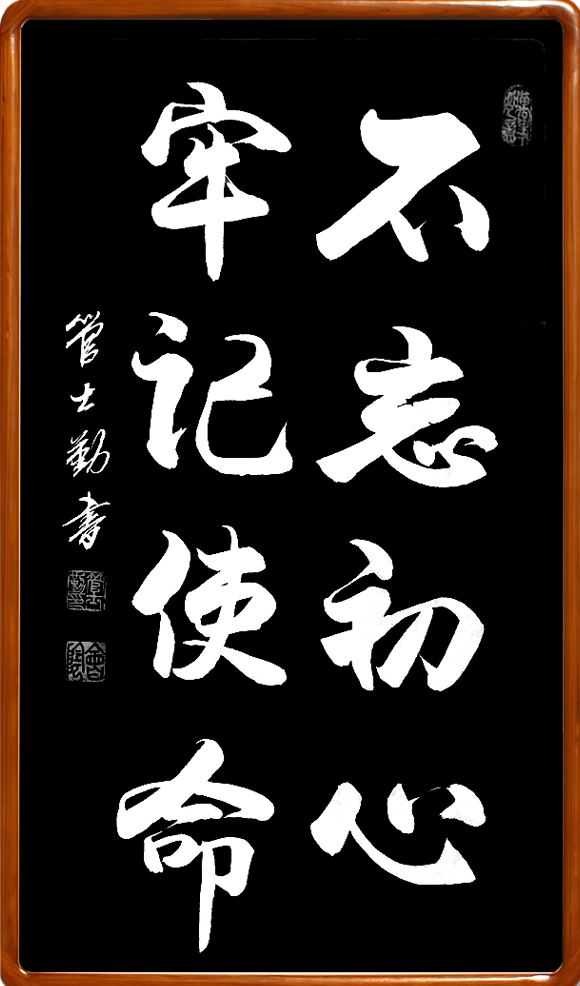 不忘初心
牢记使命
管士勤书